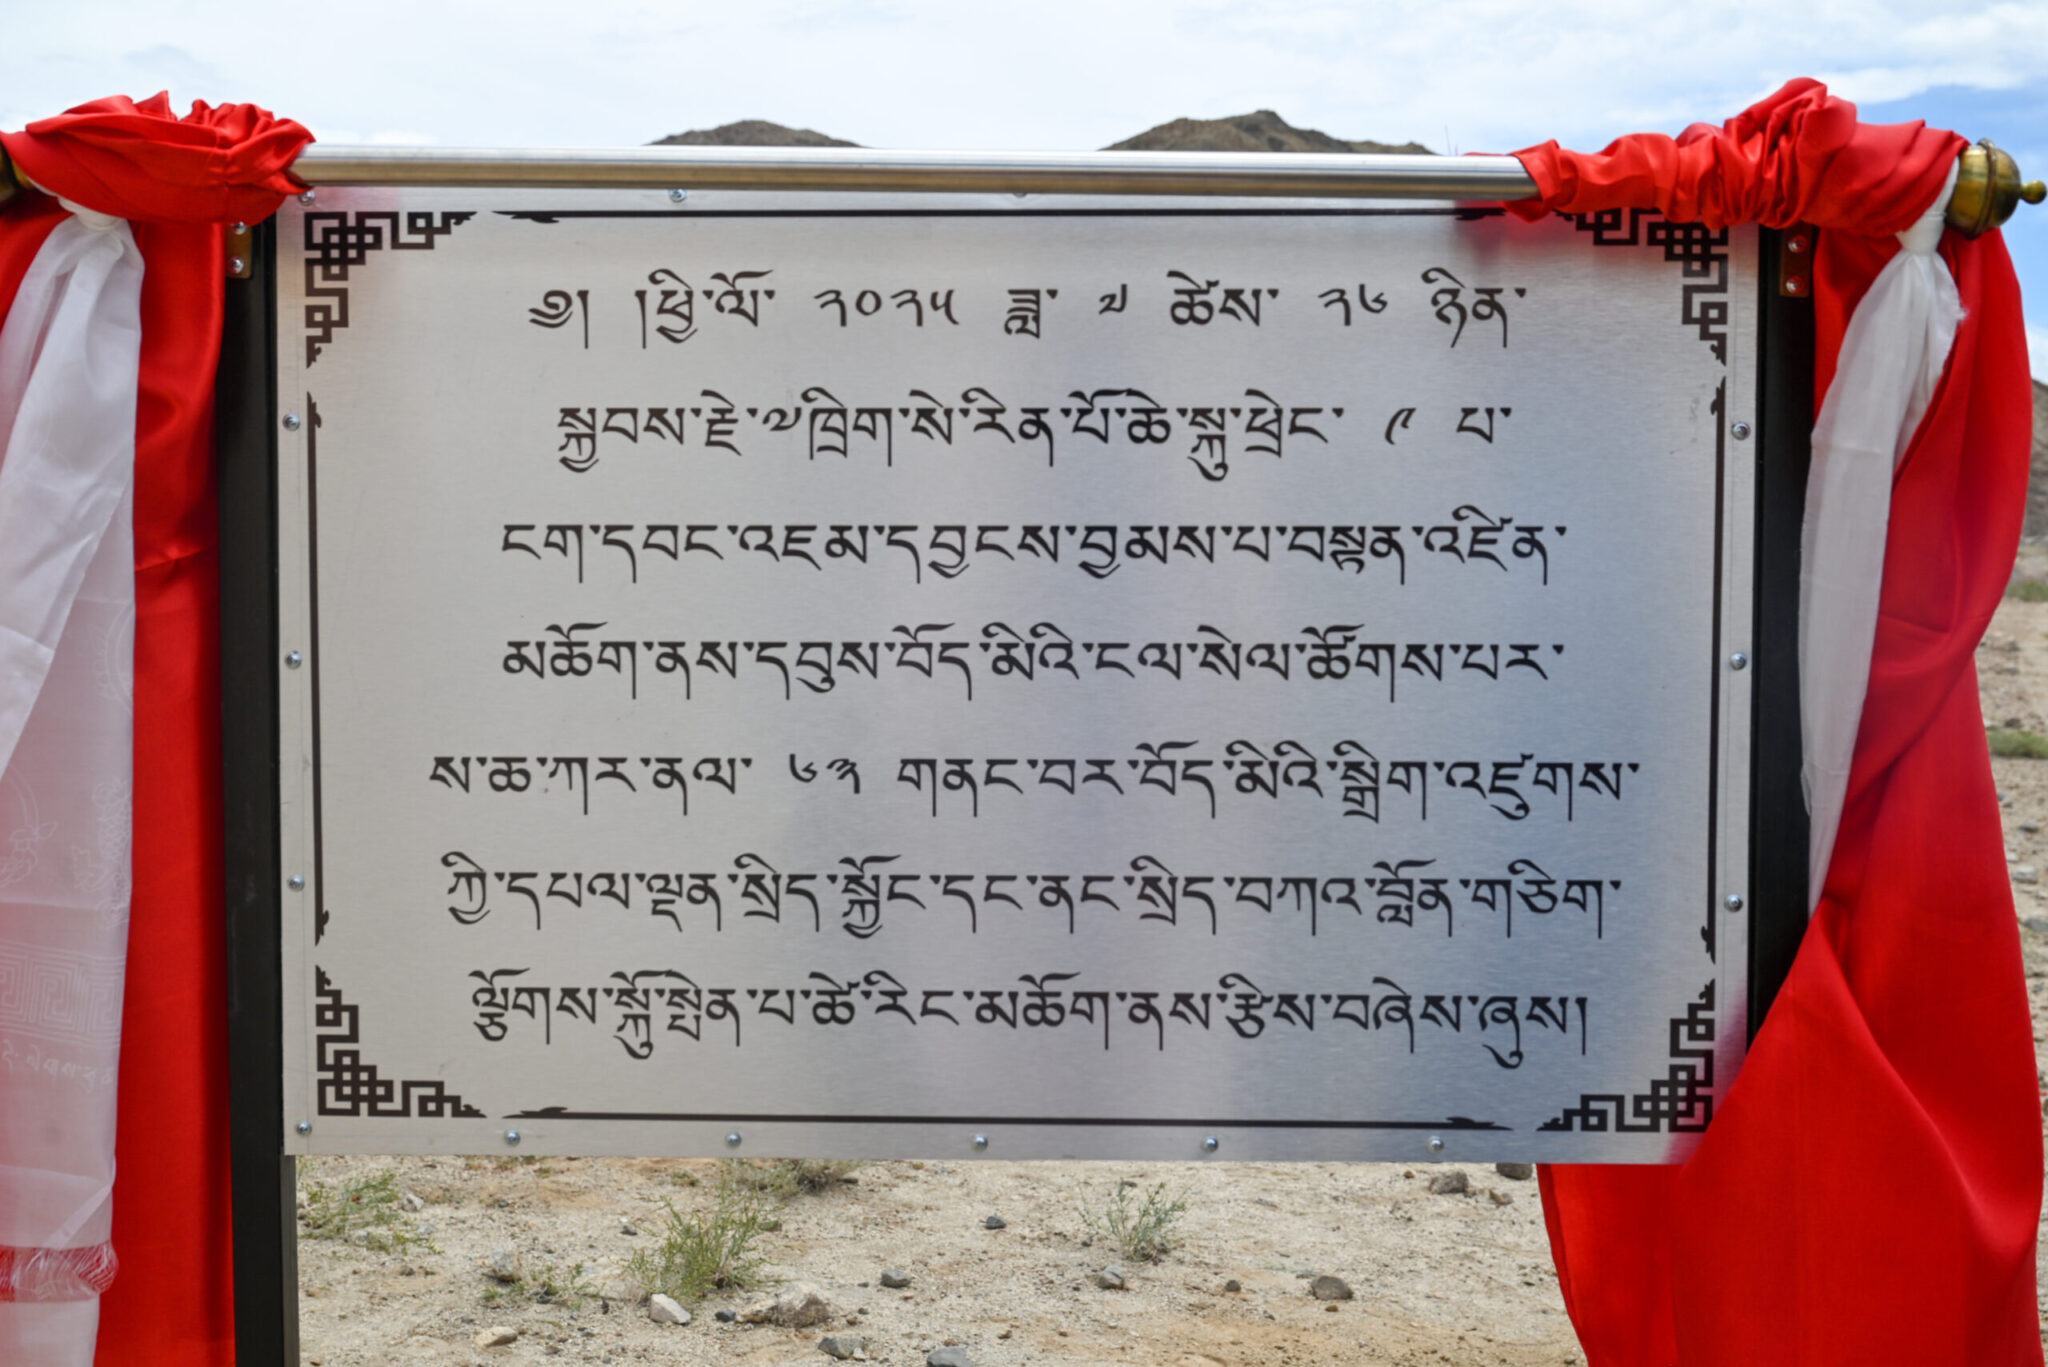 ༄། །ཕྱི་ལོ་ ༢༠༢༥ ཟླ་ ༧ ཚེས་ ༢༦ ཉིན་
སྐྱབས་རྗེ་༧ཁྲིག་སེ་རིན་པོ་ཆེ་སྐུ་ཕྲེང་ ༩ པ་
ངག་དབང་འཇམ་དབྱངས་བྱམས་པ་བསྟན་འཛིན་
མཆོག་ནས་དབུས་བོད་མིའི་ངལ་སེལ་ཚོགས་པར་
ས་ཆ་ཀར་ནལ་ ༦༣ གནང་བར་བོད་མིའི་སྒྲིག་འཛུགས་
ཀྱི་དཔལ་ལྡན་སྲིད་སྐྱོང་དང་ནང་སྲིད་བཀའ་བློན་གཅིག་
ལྕོགས་སྐུ་ངོ་སྤེན་པ་ཚེ་རིང་མཆོག་ནས་རྩིས་བཞེས་ཞུས།